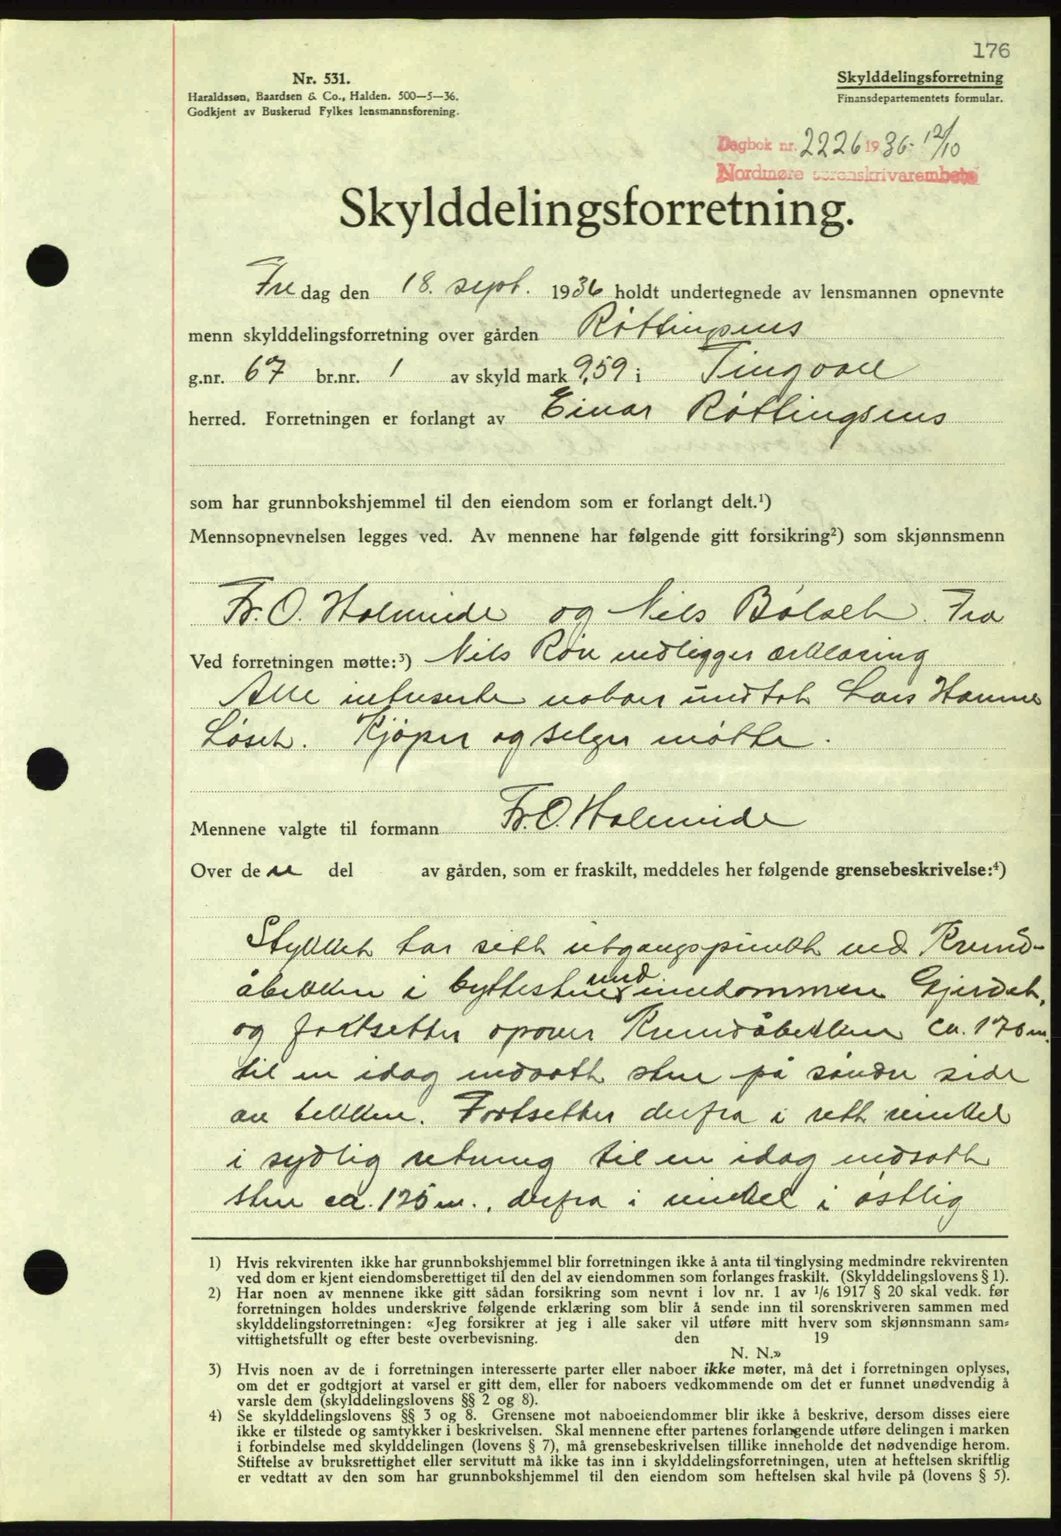 176
Nr. 531.
Haraldssøn, Baardsen & Co., Halden. 500—5—36.
Godkjent av Buskerud Fylkes lensmannsforening.
Skylddelingsforretning
Finansdepartementets formular.
Dagbok nr. 2226 1936 - 12/10
Nordmøre sorenskrivarembete
Skylddelingsforretning.
Fredag den 18. sept. 1936 holdt undertegnede av lensmannen opnevnte
menn skylddelingsforretning over gården Røttingsnes
g.nr. 67 br.nr. 1 av skyld mark 9,59 i Tingvoll
herred. Forretningen er forlangt av Einar Røttingsnes
som har grunnbokshjemmel til den eiendom som er forlangt delt.¹)
Mennsopnevnelsen legges ved. Av mennene har følgende gitt forsikring²) som skjønnsmenn
Fr. O. Holmeide og Nils Bølset. Fra
Ved forretningen møtte:³) Nils Røv vedligger erklæring
Alle naboer undtat Lars Hanmo
Løset. Kjøper og selger møtte.
Mennene valgte til formann Fr. O. Holmeide
Over den del av gården, som er fraskilt, meddeles her følgende grensebeskrivelse:⁴)
Stykket har sitt utgangspunkt ved
åbekken i byttesten med eiendommen Gjerdet,
og fortsetter opover ca. 170 m.
til en idag nedsatt sten på søndre side
av bekken. Fortsetter derfra i rett vinkel
i sydlig retning til en idag nedsatt
sten ca. 125 m., derfra i vinkel i østlig
1) Hvis rekvirenten ikke har grunnbokshjemmel blir forretningen ikke å anta til tinglysing medmindre rekvirenten
ved dom er kjent eiendomsberettiget til den del av eiendommen som forlanges fraskilt. (Skylddelingslovens § 1).
2) Har noen av mennene ikke gitt sådan forsikring som nevnt i lov nr. 1 av 1/6 1917 § 20 skal vedk. før
forretningen holdes underskrive følgende erklæring som blir å sende inn til sorenskriveren sammen med
skylddelingsforretningen: «Jeg forsikrer at jeg i alle saker vil utføre mitt hverv som skjønnsmann sam-
vittighetsfullt og efter beste overbevisning. den 19
N. N.»
3) Hvis noen av de i forretningen interesserte parter eller naboer ikke møter, må det i forretningen oplyses,
om det er godtgjort at varsel er gitt dem, eller for naboers vedkommende om det er funnet unødvendig å
varsle dem (skylddelingslovens §§ 2 og 8).
4) Se skylddelingslovens §§ 3 og 8. Grensene mot naboeiendommer blir ikke å beskrive, dersom disses eiere
ikke er tilstede og samtykker i beskrivelsen. Skal mennene efter partenes forlangende utføre delingen i marken
i forbindelse med skylddelingen (lovens § 7), må grensebeskrivelsen tillike inneholde det nødvendige herom.
Stiftelse av bruksrettighet eller servitutt må ikke tas inn i skylddelingsforretningen, uten at heftelsen skriftlig
er vedtatt av den som har grunnbokshjemmel til den eiendom som heftelsen skal hvile på (lovens § 5).